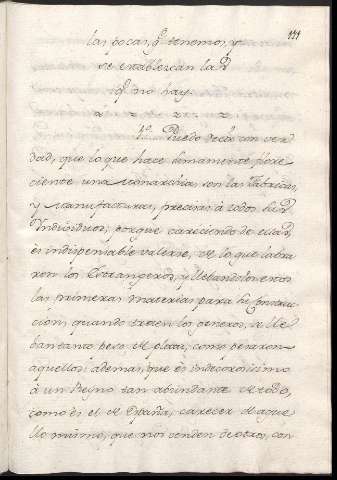 111
las pocas, q.e tenemos, y
se establezcan las
q.e no hay.
1.o Puedo decir con ver
dad, que lo que hace sumamente flore
ciente una Monarchia son las Fabricas,
y Manufacturas, precisas á todos sus
Individuos, porque careciendo de ellas,
es indispensable valerse, de lo que labra
ron los Estrangeros, y llebandolos estos
las primeras materias para su Construc
cion, quando traen los generos, se lle
ban tanto peso de plata, como pesaron
aquellos: ademas, que es indecorosisimo
à un Reyno tan abundante de todo,
como es el de España, carecer de aque
llo mismo, que nos venden otros, con